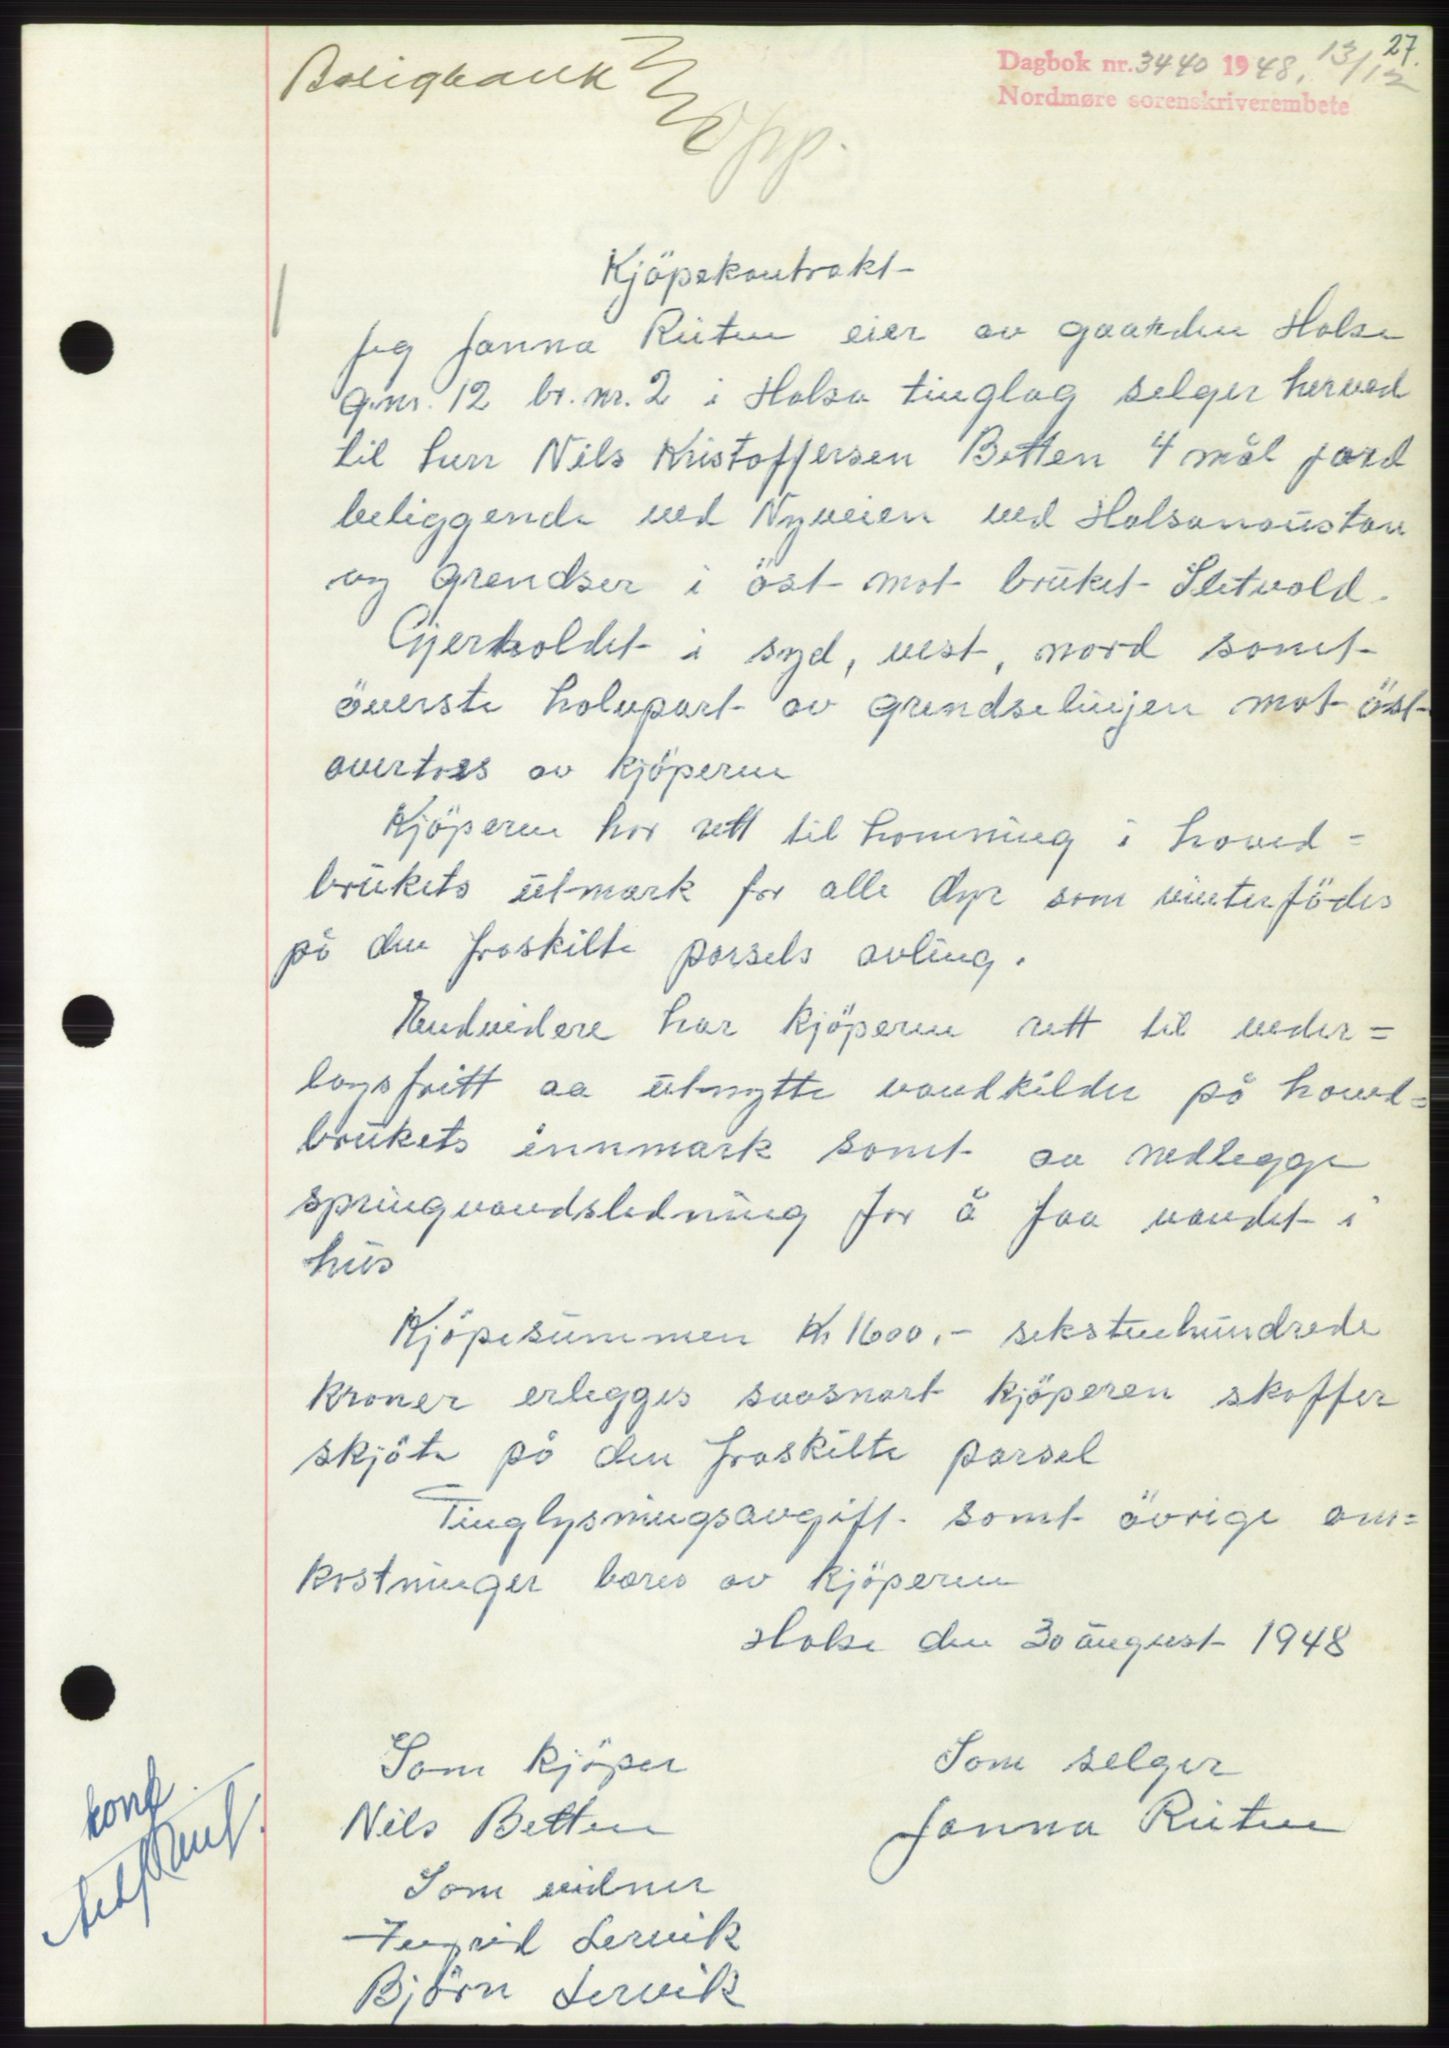 27.
Boligbank
Dagbok nr. 3440 1948. 13/12
Nordmøre sorenskriverembete
opp.
Kjöpekontrakt
Jeg Janna Rüten eier av gaarden Halsa
g.nr. 12 br. nr. 2 i Halsa tinglag selger herved
til herr Nils Kristoffersen Betten 4 mål jord
beliggende ved Nyveien ved Halsanaustan
og grendser i öst mot brüket Sletvold.
Gjerholdet i syd, vest, nord samt
överste halvpart av grendselinjen mot öst
overtas av kjöperen
Kjöperen har rett til hamning i hoved=
brükets ütmark for alle dyr som vinterfödes
på den fraskilte parsels avling.
Endvidere har kjöperen rett til veder=
lagsfritt aa ütnytte vandkilder på hoved=
brükets innmark samt aa nedlegge
springvandsledning for å faa vandet i
hüs
Kjöpesümmen Kr 1600.- sekstenhündrede
kroner erlegges saasnart kjöperen skaffer
skjöte på den fraskilte parsel
Tinglysningsavgift samt övrige om=
kostninger bæres av kjöperen
Halsa den 30 aügust 1948
Som kjöper Som selger
Nils Betten Janna Rüten
Som vidner
Ingrid Lervik
Björn Lervik
konf.